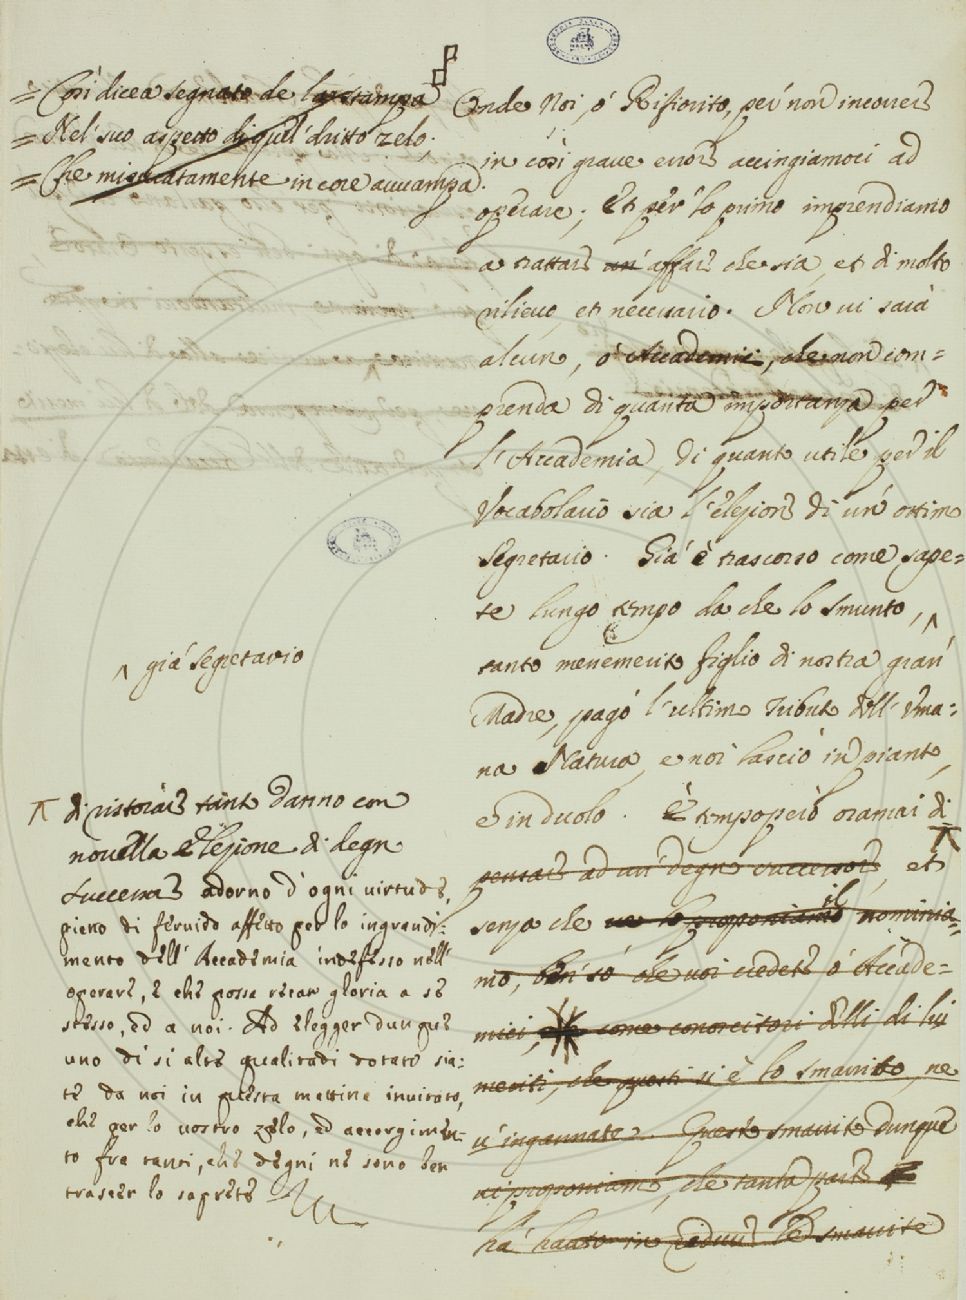 = Così dicea segnato de la stampa
= Nel suo aspetto di quel dritto zelo,
= Che misuratamente in core avvampa.
Onde Noi, ó Rifiorito, per non incorrere
in così grave errore accingiamoci ad
operare; Et per lo primo imprendiamo
a trattare un' affare che sia, et di molto
rilievo, et necessario. Non vi sarà
alcun, ó Accademici, che non com=
prenda di quanta importanza per
l'Accademia, di quanto utile per il
Vocabolario sia l'elezione di un' ottimo
Segretario. Già è trascorso come sape=
te lungo tempo da che lo Smunto, ^
^ già Segretario
tanto menemerito figlio di nostra gran
Madre, pagò l'ultimo tributo dell' Uma=
na Natura, e noi lasciò in pianto,
e in duolo. È tempo però oramai di
pensare ad un degno successore, et
senza che ve lo proponiamo il nominia=
mo, ben só che voi credete ó Accade=
mici, come conoscitori delli di lui
meriti, che questi si è lo Smarrito, ne
v'ingannate. Questo Smarrito dunque
vi proponiamo, che tanta parte
há hauto in ridurre lo Smarrito
di ristorare tanto danno con
novella Elezione di degno
Successore adorno d'ogni virtude,
pieno di fervido affetto per lo ingrandi=
mento dell' Accademia indefesso nell'
operare, e che possa recar gloria a se
stesso, ed a noi. Ad elegger dunque
uno di si alte qualitadi dotato sia=
te da noi in questa mattina invitato,
che per lo vostro zelo, ed accorgimen=
to fra tanti, che degni ne sono ben
trascer lo saprete